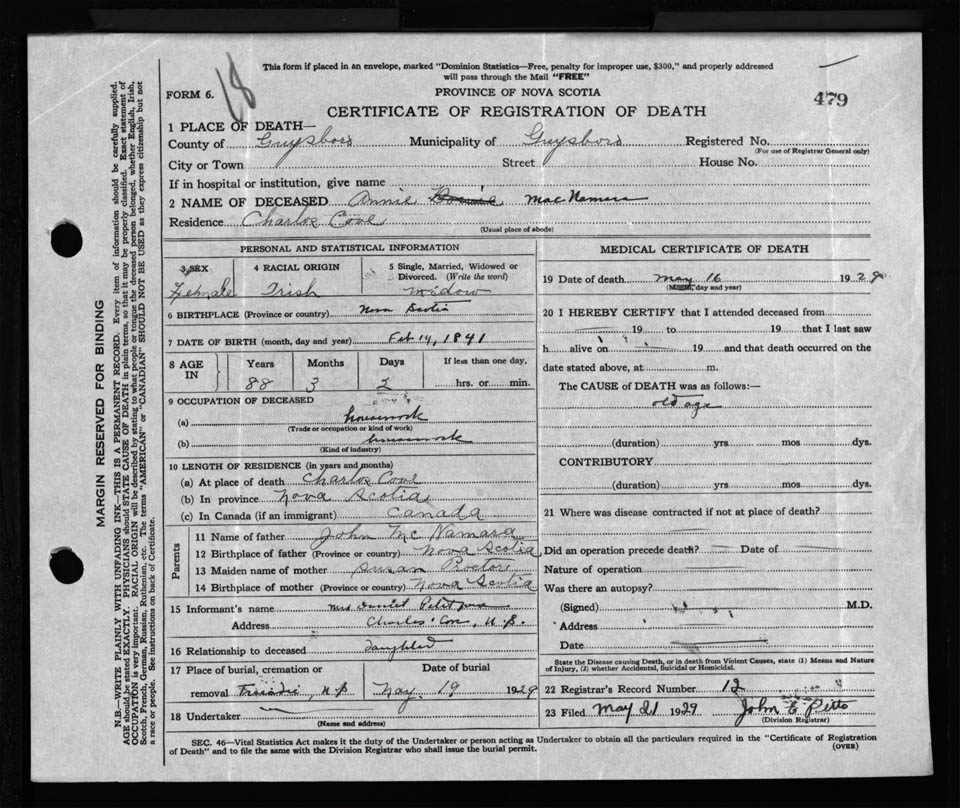 This form if placed in an envelope, marked "Dominion Statistics—Free, penalty for improper use, $300," and properly addressed
will pass through the Mail "FREE"
18
479
FORM 6.
PROVINCE OF NOVA SCOTIA
CERTIFICATE OF REGISTRATION OF DEATH
1 PLACE OF DEATH—
County of Guysboro Municipality of Guysboro Registered No.
(For use of Registrar General only)
City or Town Street House No.
If in hospital or institution, give name
2 NAME OF DECEASED Annie MacNamara
Residence Charlos Cove
(Usual place of abode)
PERSONAL AND STATISTICAL INFORMATION
3 SEX 4 RACIAL ORIGIN 5 Single, Married, Widowed or
Divorced. (Write the word)
Female Irish widow
6 BIRTHPLACE (Province or country) Nova Scotia
7 DATE OF BIRTH (month, day and year) Feb 14, 1841
8 AGE IN Years Months Days If less than one day,
88 3 2 hrs. or min.
9 OCCUPATION OF DECEASED
(a) housework
(Trade or occupation or kind of work)
(b) housework
(Kind of industry)
10 LENGTH OF RESIDENCE (in years and months)
(a) At place of death Charlos Cove
(b) In province Nova Scotia
(c) In Canada (if an immigrant) Canada
Parents
11 Name of father John McNamara
12 Birthplace of father (Province or country) Nova Scotia
13 Maiden name of mother Susan Proctor
14 Birthplace of mother (Province or country) Nova Scotia
15 Informant's name Mrs Daniel Petitpas
Address Charlos Cove, N.S.
16 Relationship to deceased Daughter
17 Place of burial, cremation or Date of burial
removal N.S May 19 1929
18 Undertaker
(Name and address)
MEDICAL CERTIFICATE OF DEATH
19 Date of death May 16 1929
(Month, day and year)
20 I HEREBY CERTIFY that I attended deceased from
19 to 19 that I last saw
h alive on 19 and that death occurred on the
date stated above, at m.
The CAUSE of DEATH was as follows:—
old age
(duration) yrs. mos. dys.
CONTRIBUTORY
(duration) yrs. mos. dys.
21 Where was disease contracted if not at place of death?
Did an operation precede death? Date of
Nature of operation
Was there an autopsy?
(Signed) M.D.
Address
Date
State the Disease causing Death, or in death from Violent Causes, state (1) Means and Nature
of Injury, (2) whether Accidental, Suicidal or Homicidal.
22 Registrar's Record Number 12
23 Filed May 21 1929 John E Pitts
(Division Registrar)
SEC. 46—Vital Statistics Act makes it the duty of the Undertaker or person acting as Undertaker to obtain all the particulars required in the "Certificate of Registration
of Death" and to file the same with the Division Registrar who shall issue the burial permit.
(OVER)
MARGIN RESERVED FOR BINDING
N.B.—WRITE PLAINLY WITH UNFADING INK—THIS IS A PERMANENT RECORD. Every item of information should be carefully supplied.
AGE should be stated EXACTLY. PHYSICIANS should STATE CAUSE OF DEATH in plain terms, so that it may be properly classified. Exact statement of
OCCUPATION is very important. RACIAL ORIGIN will be described by stating to what people or tongue the deceased person belonged, whether English, Irish,
Scotch, French, German, Russian, Ruthenian, etc. The terms "AMERICAN" or "CANADIAN" SHOULD NOT BE USED as they express citizenship but not
a race or people. See instructions on back of Certificate.